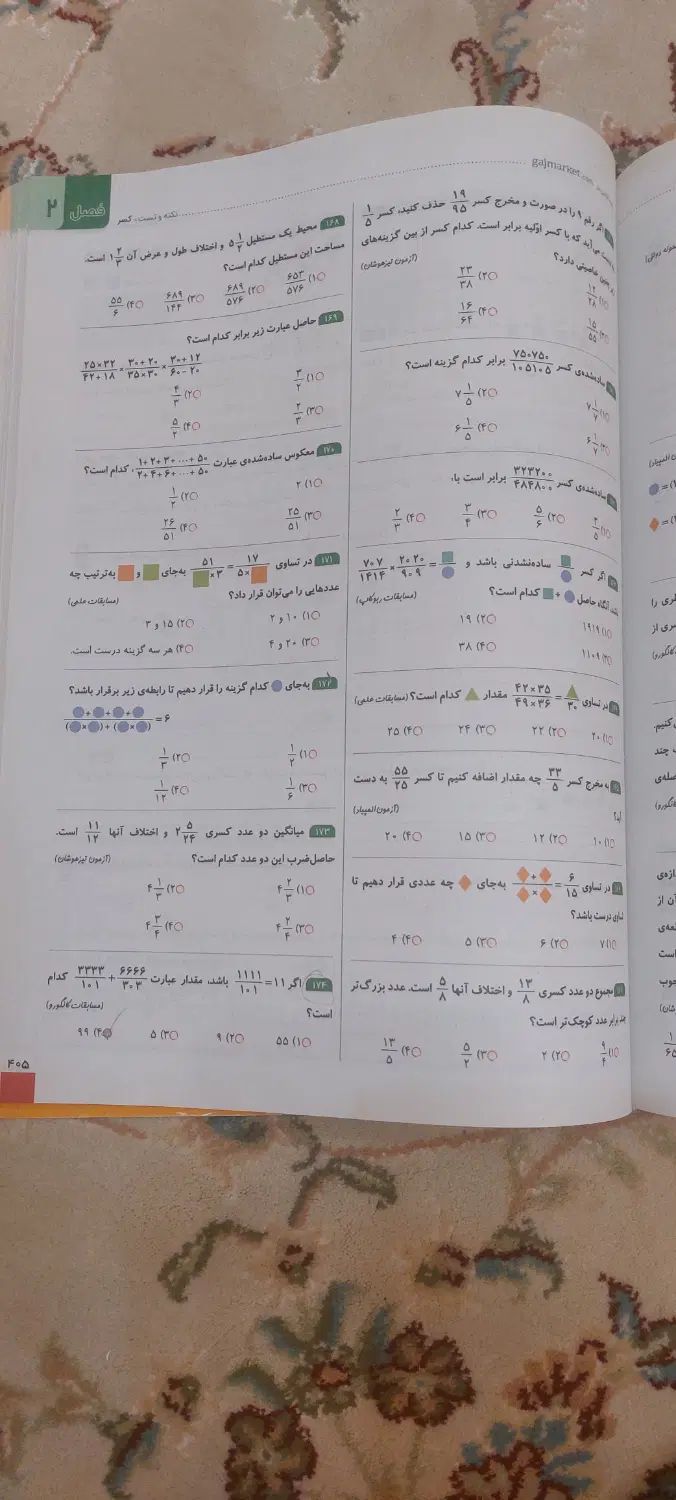 gajmarket.com
فصل ۲
نکته و تست، کسر
رقم ۹ را در صورت و مخرج کسر ۱۹/۹۵ حذف کنید، کسر ۱/۵
می‌آید که با کسر اولیه برابر است. کدام کسر از بین گزینه‌های
خاصیتی دارد؟ (آزمون تیزهوشان)
۱) ۱۲/۲۸ ۲) ۲۳/۳۸
۳) ۱۵/۵۵ ۴) ۱۶/۶۴
ساده‌شده‌ی کسر ۷۵۰۷۵۰/۱۰۵۱۰۵ برابر کدام گزینه است؟
۱) ۷ ۱/۷ ۲) ۷ ۱/۵
۳) ۶ ۱/۷ ۴) ۶ ۱/۵
ساده‌شده‌ی کسر ۳۲۳۲۰۰/۴۸۴۸۰۰ برابر است با:
۲) ۵/۶ ۳) ۳/۴ ۴) ۲/۳
اگر کسر ساده‌نشدنی باشد و = ۲۰۲۰/۹۰۹ × ۷۰۷/۱۴۱۴
آنگاه حاصل + کدام است؟ (مسابقات ربوکاپ)
۱) ۱۹۱۹ ۲) ۱۹
۳) ۱۱۰۹ ۴) ۳۸
در تساوی /۳۰ = ۴۲×۳۵/۴۹×۳۶ مقدار کدام است؟ (مسابقات علمی)
۱) ۲۰ ۲) ۲۲ ۳) ۲۴ ۴) ۲۵
به مخرج کسر ۳۳/۵ چه مقدار اضافه کنیم تا کسر ۵۵/۲۵ به دست
آید؟ (آزمون المپیاد)
۱) ۱۰ ۲) ۱۲ ۳) ۱۵ ۴) ۲۰
در تساوی ۶/۱۵ = +/× به‌جای چه عددی قرار دهیم تا
تساوی درست باشد؟
۱) ۷ ۲) ۶ ۳) ۵ ۴) ۴
مجموع دو عدد کسری ۱۳/۸ و اختلاف آنها ۵/۸ است. عدد بزرگ‌تر
چند برابر عدد کوچک‌تر است؟
۱) ۹/۴ ۲) ۲ ۳) ۵/۲ ۴) ۱۳/۵
۱۶۸ محیط یک مستطیل ۵ ۱/۲ و اختلاف طول و عرض آن ۱ ۲/۳ است.
مساحت این مستطیل کدام است؟
۱) ۶۵۳/۵۷۶ ۲) ۶۸۹/۵۷۶ ۳) ۶۸۹/۱۴۴ ۴) ۵۵/۶
۱۶۹ حاصل عبارت زیر برابر کدام است؟
۲۵×۳۲/۴۲+۱۸ × ۳۰+۲۰/۳۵×۳۰ × ۳۰+۱۲/۶۰-۲۰
۱) ۳/۲ ۲) ۴/۳
۳) ۲/۳ ۴) ۵/۲
۱۷۰ معکوس ساده‌شده‌ی عبارت ۱+۲+۳+...+۵۰/۲+۴+۶+...+۵۰، کدام است؟
۱) ۲ ۲) ۱/۲
۳) ۲۵/۵۱ ۴) ۲۶/۵۱
۱۷۱ در تساوی ۱۷/۵× = ۵۱/×۳ به‌جای و به‌ترتیب چه
عددهایی را می‌توان قرار داد؟ (مسابقات علمی)
۱) ۱۰ و ۲ ۲) ۱۵ و ۳
۳) ۲۰ و ۴ ۴) هر سه گزینه درست است.
۱۷۲ به‌جای کدام گزینه را قرار دهیم تا رابطه‌ی زیر برقرار باشد؟
+++/(×)+(×) = ۶
۱) ۱/۲ ۲) ۱/۳
۳) ۱/۶ ۴) ۱/۱۲
۱۷۳ میانگین دو عدد کسری ۲ ۵/۲۴ و اختلاف آنها ۱۱/۱۲ است.
حاصل‌ضرب این دو عدد کدام است؟ (آزمون تیزهوشان)
۱) ۴ ۲/۳ ۲) ۴ ۱/۳
۳) ۴ ۲/۴ ۴) ۴ ۳/۴
۱۷۴ اگر ۱۱ = ۱۱۱۱/۱۰۱ باشد، مقدار عبارت ۶۶۶۶/۳۰۳ + ۳۳۳۳/۱۰۱ کدام
است؟ (مسابقات کانگورو)
۱) ۵۵ ۲) ۹ ۳) ۵ ۴) ۹۹
۴۰۵